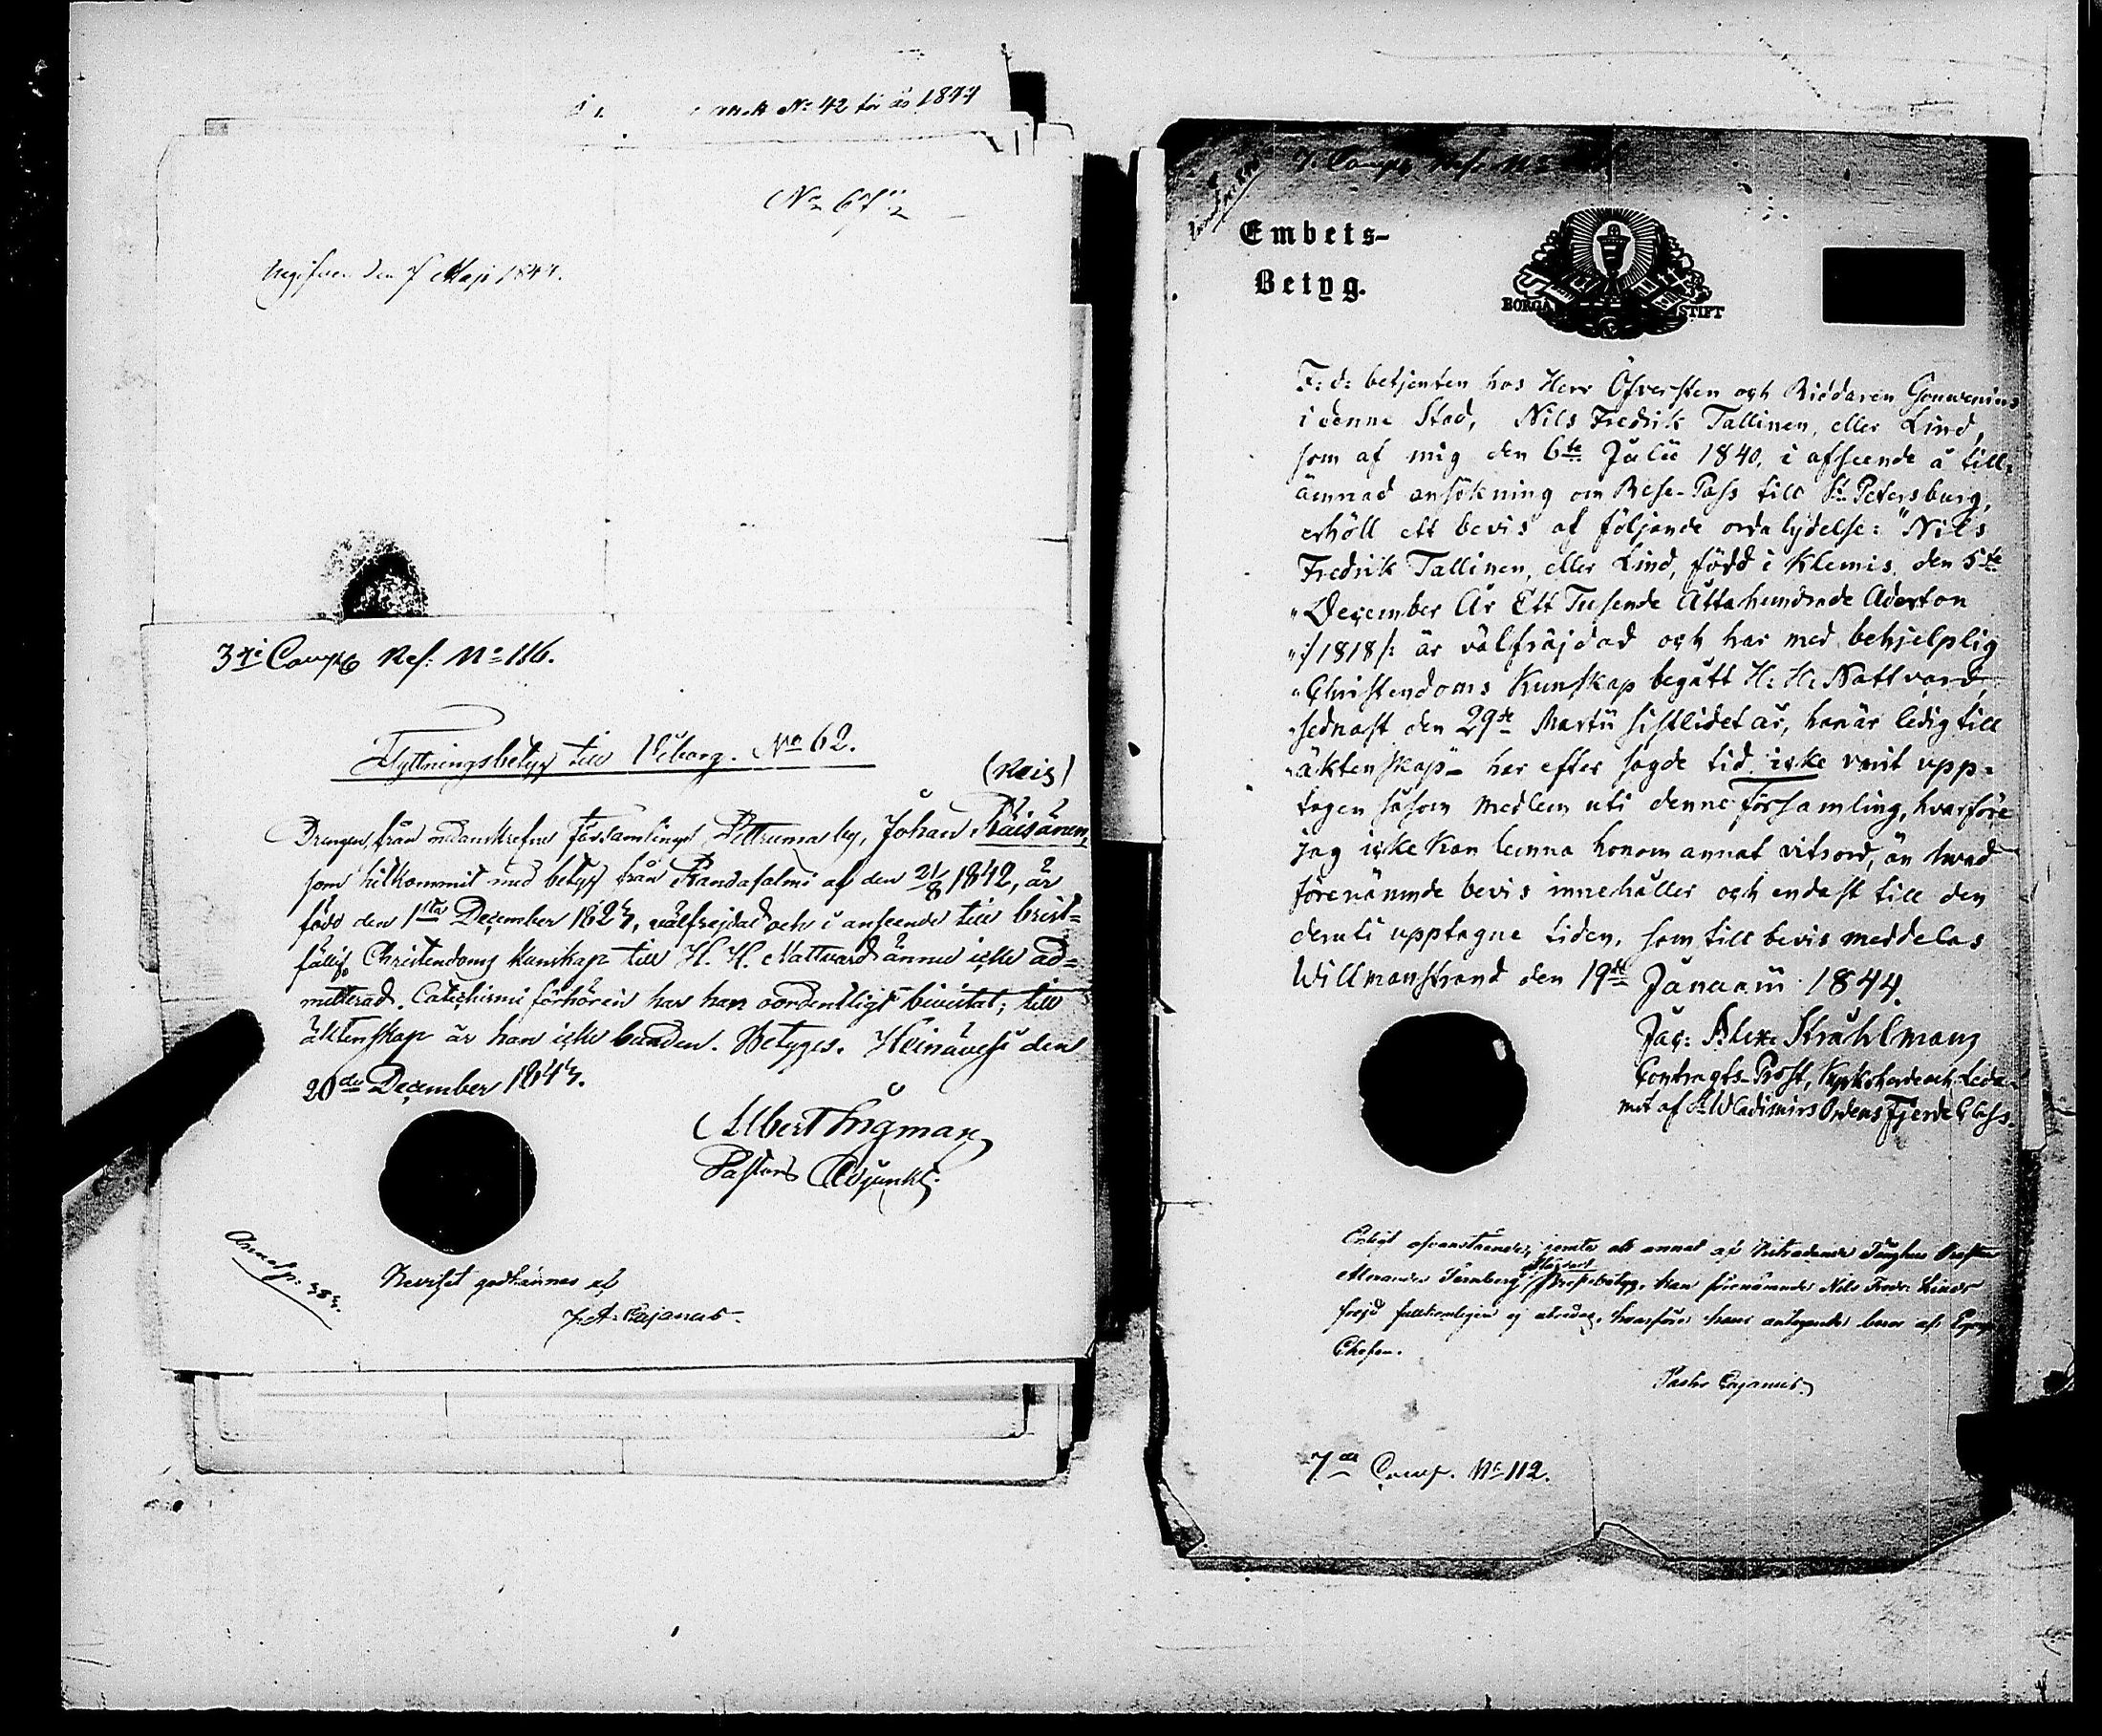 No 42 för år 1844
No 67
Utgifven den 7 Maji 1844.
3die Comp Ref: No 116.
Flyttningsbetyg till Viborg. No 62.
(Reis)
Drengen, från nedanskrefne församlings by, Johan Räisänen,
som hitkommit med betyg från Randasalmi af den 21/8 1842, är
född den 1sta December 1823, välfrejdad och i anseende till brist=
fällig Christendoms kunskap till H. H. Nattvard ännu icke ad=
mitterad. Catechismi förhören har han oordentligt bivistat; till
äktenskap är han icke bunden. Betyges. Heinävesi den
20de December 1843.
Albert Ingman
Pastors Adjunkt.
Revisit godkännes af
J. A. Cajanus.
7. Comp Ref: No
Embets-
Betyg.
BORGÅ STIFT
F: d: betjenten hos Herr Öfversten och Riddaren
i denne Stad, Nils Fredrik Tallinen, eller Lind,
som af mig den 6te Julii 1840, i afseende å till=
ämnad ansökning om Rese-Pass till St Petersburg,
erhöll ett bevis af följande orda lydelse: "Nils
Fredrik Tallinen, eller Lind, född i Klemis den 5te
"December År Ett Tusende Åttahundrade Aderton
":/1818/: är välfräjdad och har med behjelplig
"Christendoms Kunskap begått H: H: Nattvard,
"sednast den 29de Martii sistlidet år, han är ledig till
"äktenskap" har efter sagde tid icke varit upp=
tagen såsom medlem uti denne Församling, hvarföre
jag icke kan lemna honom annat vitsord, än hvad
förenämnde bevis innehåller och endast till den
deruti upptagne tiden, som till bevis meddelas
Willmanstrand den 19de Januarii 1844.
Jac: Alex: Stråhlman
Contracts-Prost, Kyrkoherde och Leda=
mot af St Wladimirs Ordens Fjerde Class.
Enligt ofvanstående, jemte ett annat af
Alexander kan förenämnde Nils Fredr: Linds
frejd fullkomligen ej utredas, hvarföre hans antagande beror af
Chefen.
Cajanus.
7de Comp. No 112.